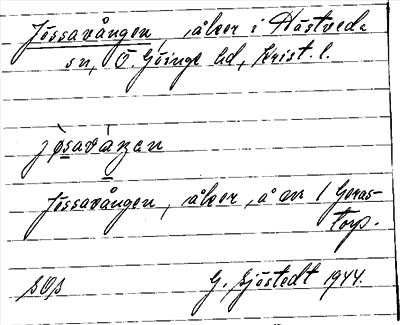 Jössavången, åker i Hästveda
sn, Ö. Göinge hd, Krist. l.
jø̀savàŋen
Jössavången, åker, å nr 1 Goras-
torp.
SOS G. Sjöstedt 1944.